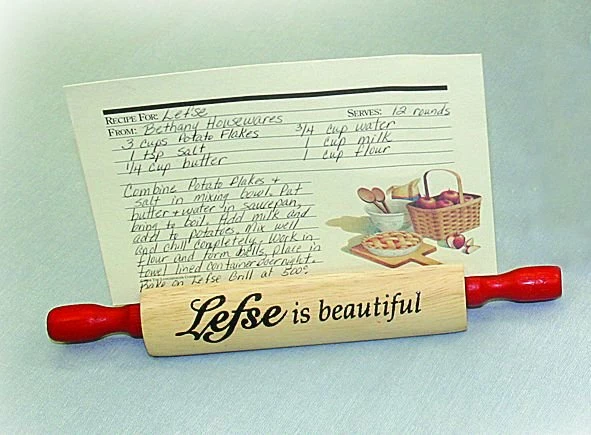 RECIPE FOR: Lefse SERVES: 12 rounds
FROM: Bethany Housewares
3 cups Potato Flakes 3/4 cup water
1 tsp salt 1 cup milk
1/4 cup butter 1 cup flour
Combine Potato Flakes +
salt in mixing bowl. Put
butter + water in saucepan,
bring to boil. Add milk and
add to potatoes. Mix well
and chill completely. Work in
flour and form balls, place in
towel lined container overnight.
Bake on Lefse Grill at 500°
Lefse is beautiful